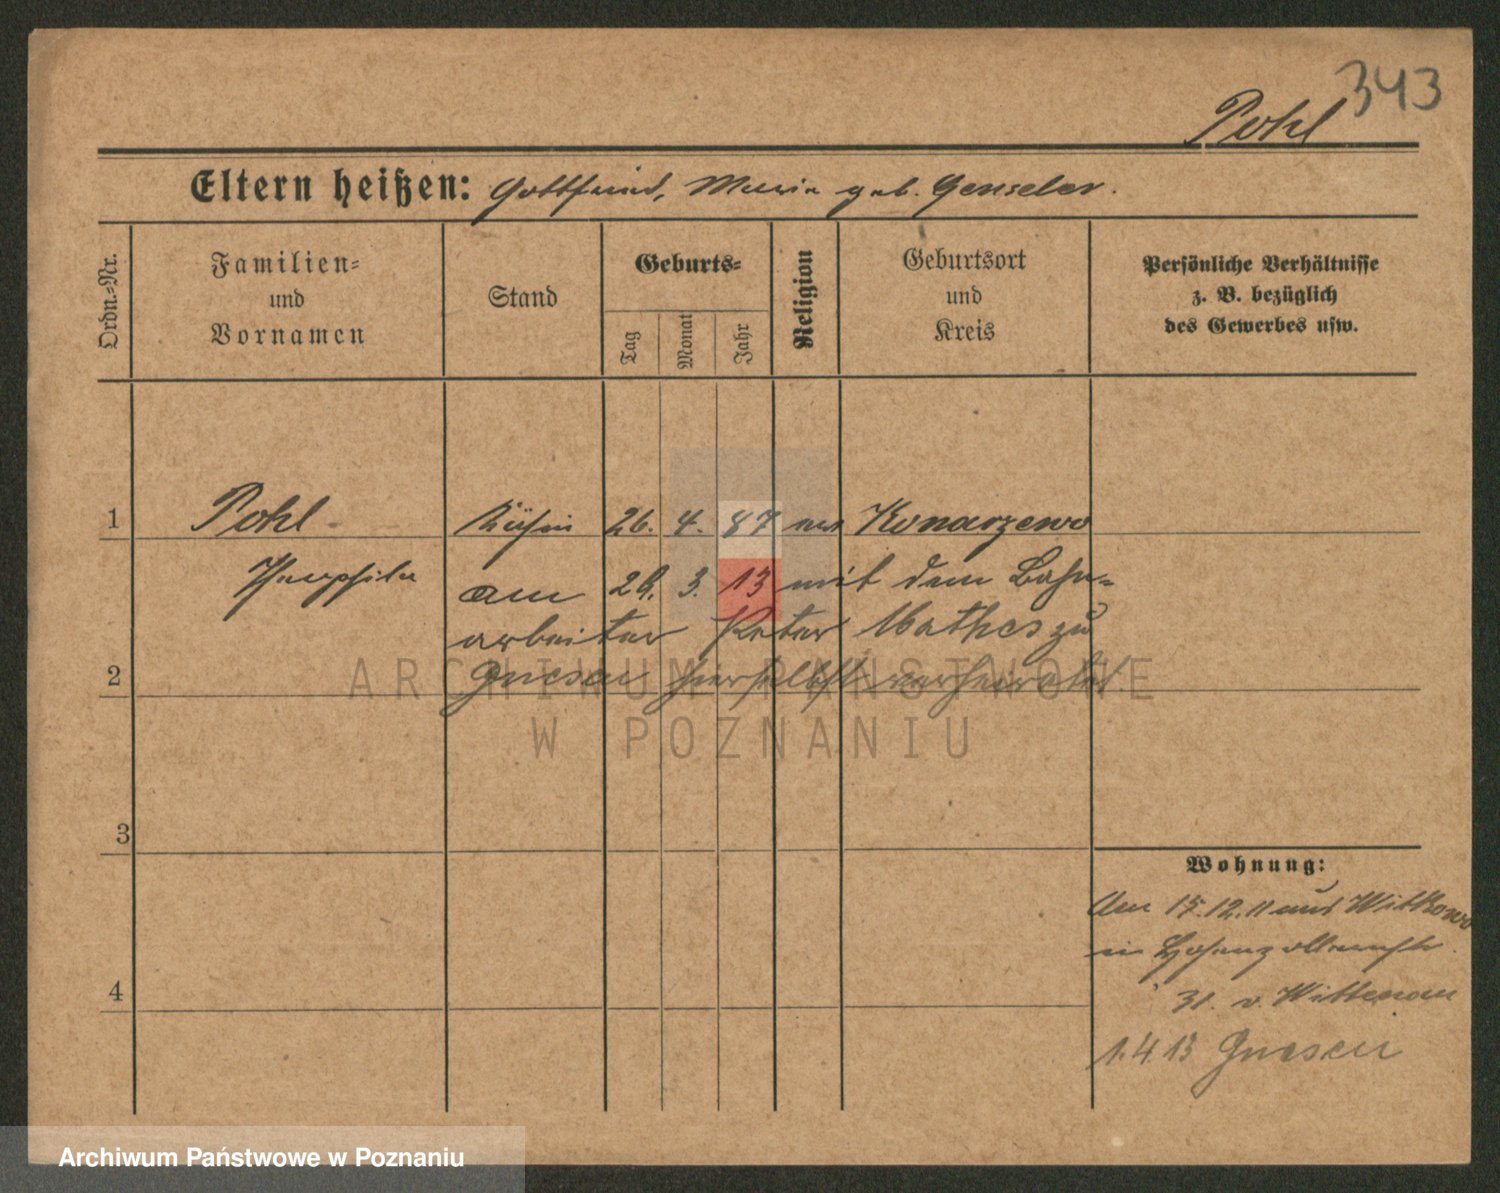 343
Pohl
Eltern heißen: Gottfried, Maria geb. Genseler.
Ordn.-Nr.
Familien-
und
Vornamen
Stand
Geburts-
Tag
Monat
Jahr
Religion
Geburtsort
und
Kreis
Persönliche Verhältnisse
z. B. bezüglich
des Gewerbes usw.
1 Pohl 26. 4. 87 ev Konarzewo
am 28. 3. 13 mit dem Bahn-
arbeiter Peter Mathes zu
2 Gnesen hierselbst verheiratet
ARCHIWUM PAŃSTWOWE
W POZNANIU
3
Wohnung:
Am 15.12.11 aus Witkowo
in Hohenzollernstr.
4 31. v. Wittenau
1.4.13 Gnesen
Archiwum Państwowe w Poznaniu